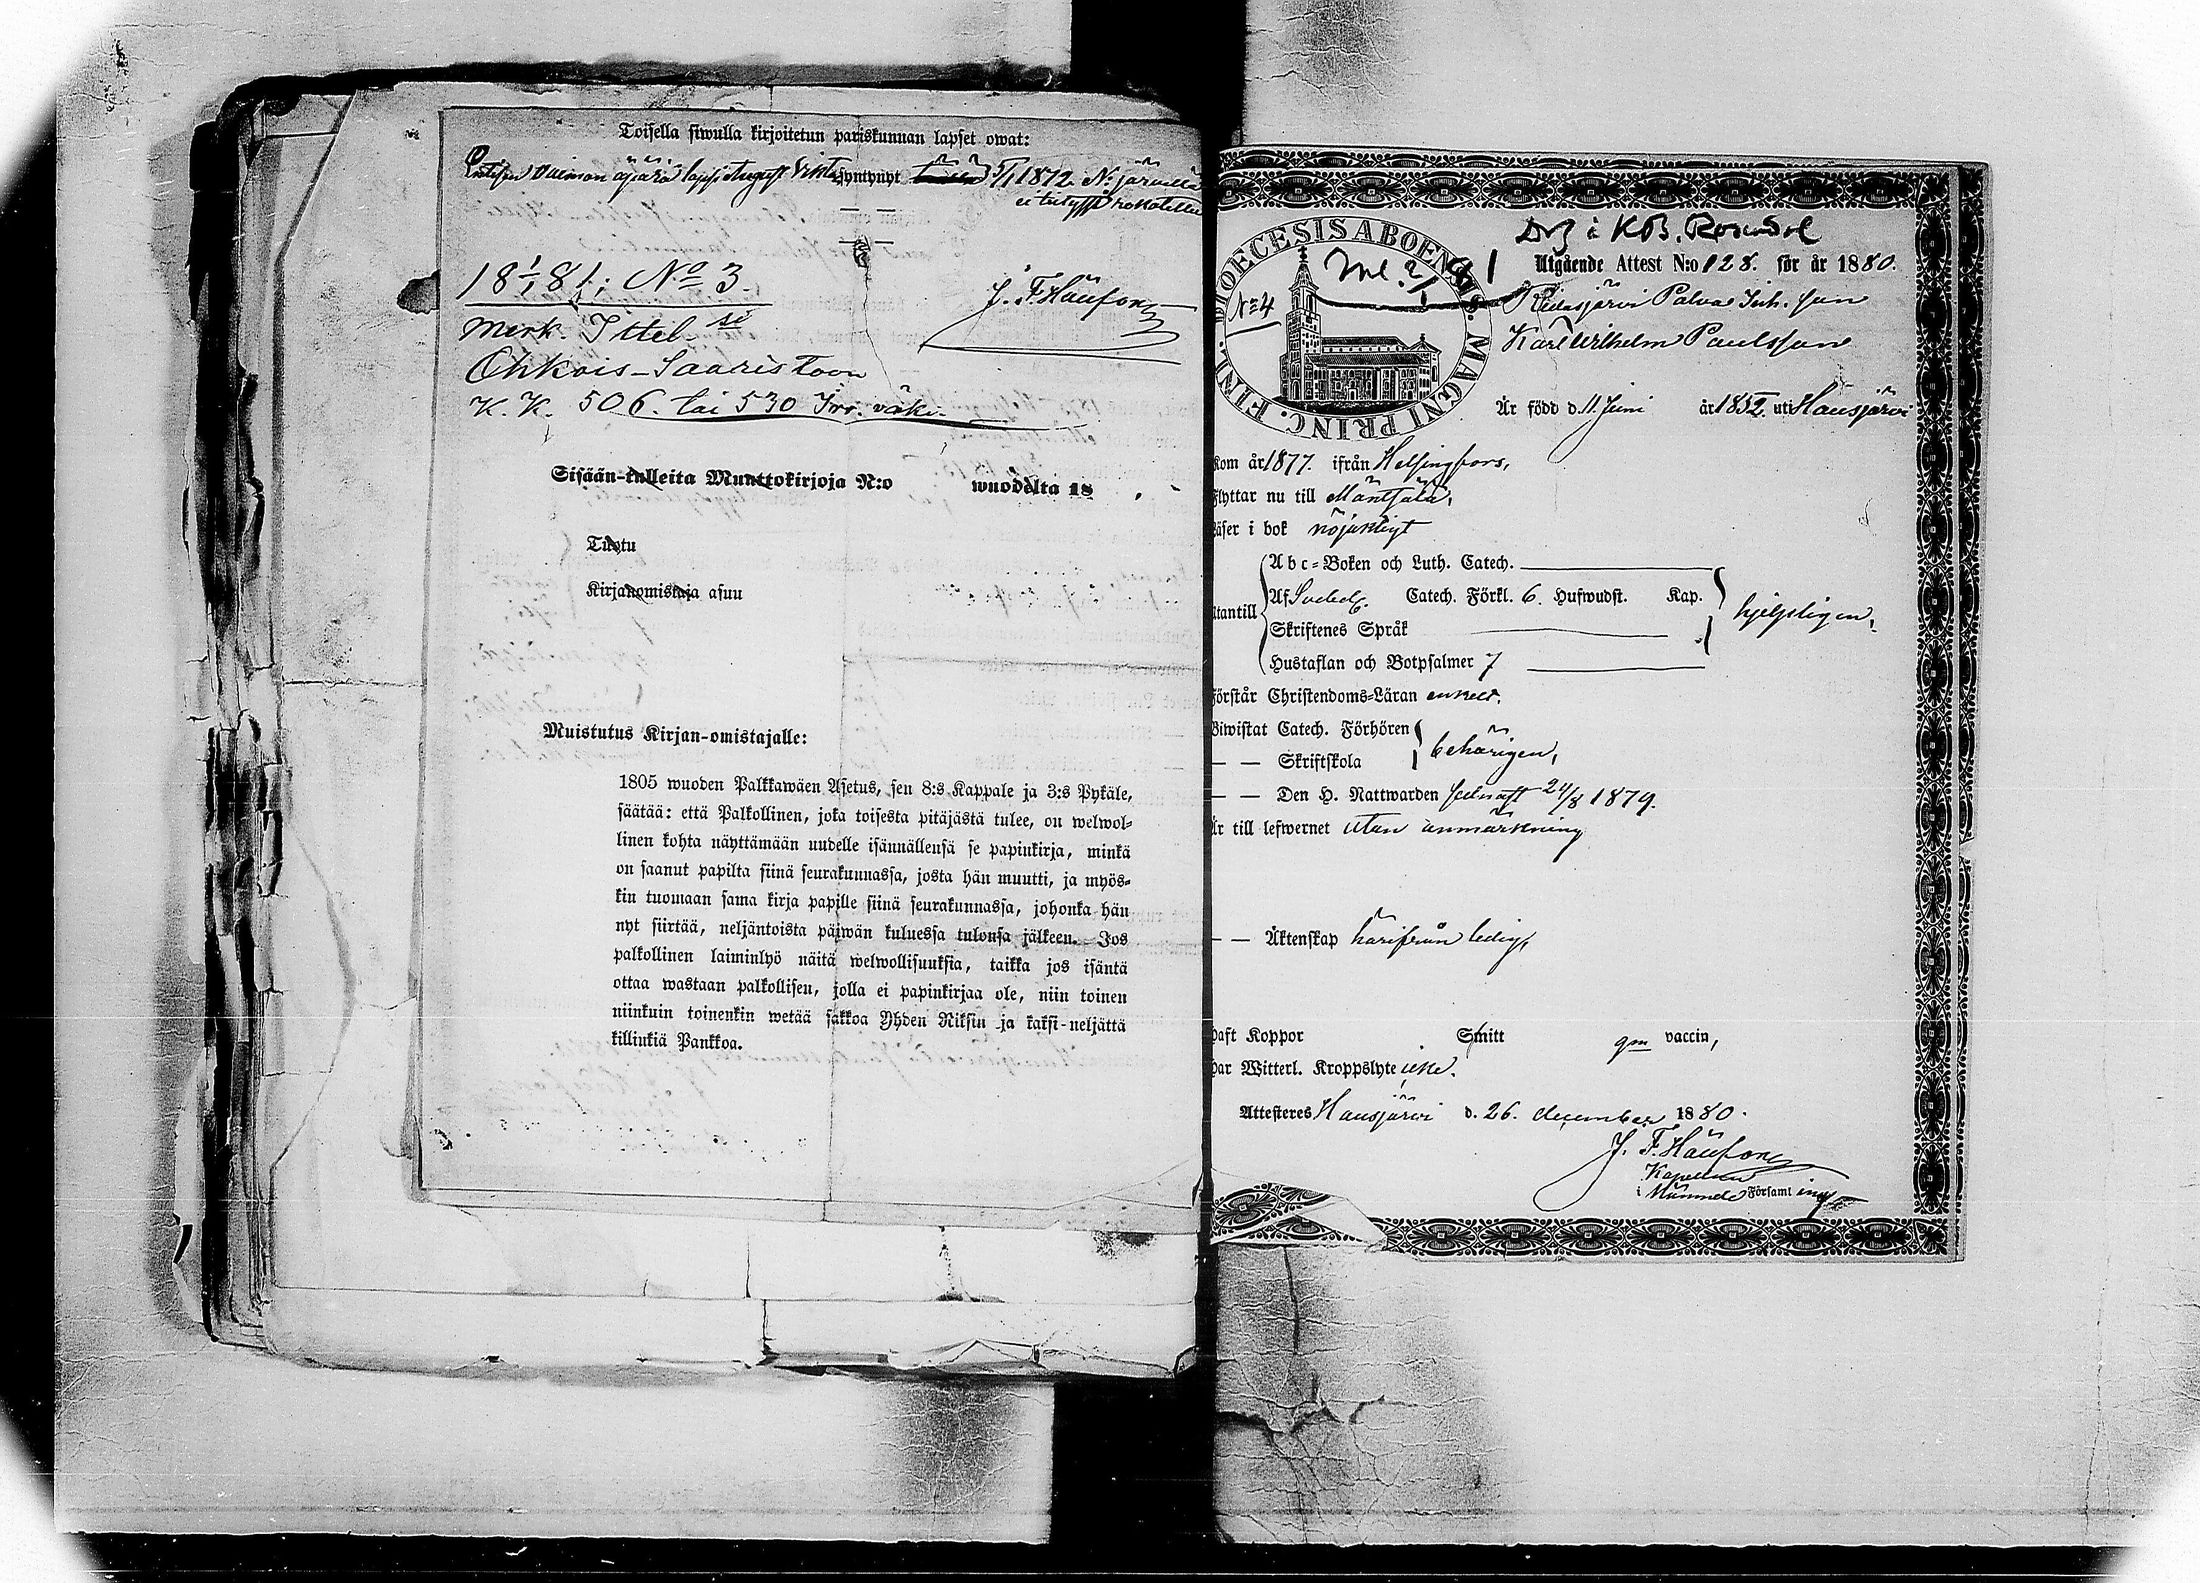 Toisella siwulla kirjoitetun pariskunnan lapset owat:
waimon äpärä lapsi August syntynyt 5/1 1872 N. järwellä
ei tietysti rokotettu
18 1/1 81; No 3. J. F. Häufong
merk. Ittel
Ohkois-Saaristoon
K. K. 506. tai 530 Irr. väki.
Sisään-tulleita Muuttokirjoja N:o wuodelta 18 .
Tuotu
Kirjanomistaja asuu
Muistutus Kirjan-omistajalle:
1805 wuoden Palkkawäen Asetus, sen 8:s Kappale ja 3:s Pykäle,
säätää: että Palkollinen, joka toisesta pitäjästä tulee, on welwol-
linen kohta näyttämään uudelle isännällensä se papinkirja, minkä
on saanut papilta siinä seurakunnassa, josta hän muutti, ja myös-
kin tuomaan sama kirja papille siinä seurakunnassa, johonka hän
nyt siirtää, neljäntoista päiwän kuluessa tulonsa jälkeen. Jos
palkollinen laiminlyö näitä welwollisuuksia, taikka jos isäntä
ottaa wastaan palkollisen, jolla ei papinkirjaa ole, niin toinen
niinkuin toinenkin wetää sakkoa Yhden Riksin ja kaksi-neljättä
killinkiä Pankkoa.
DIOECESIS ABOENSIS. MAGNI PRINC. FINL.
No 4
i KB.
Utgående Attest N:o 128. för år 1880.
Palva Inh. son
Karl Wilhelm Paulsson
Är född d. 11 Juni år 1852 uti Hausjärvi
kom år 1877. ifrån Helsingfors,
flyttar nu till Mäntsälä,
läser i bok nöjaktigt
Abc-Boken och Luth. Catech.
Af Svebel. Catech. Förkl. 6. Hufwudst. Kap.
utantill hjelpligen,
Skriftenes Språk
Hustaflan och Botpsalmer 7
förstår Christendoms-Läran enkelt.
Biwistat Catech. Förhören
behörigen,
— — Skriftskola
— — Den H. Nattwarden sednast 24/8 1879.
Är till lefwernet utan anmärkning
— — Äktenskap härifrån ledig,
haft Koppor Smitt gm vaccin,
har Witterl. Kroppslyte icke.
Attesteres Hausjärvi d. 26. december 1880.
J. F. Häufong
Kapellan
i Församl ing